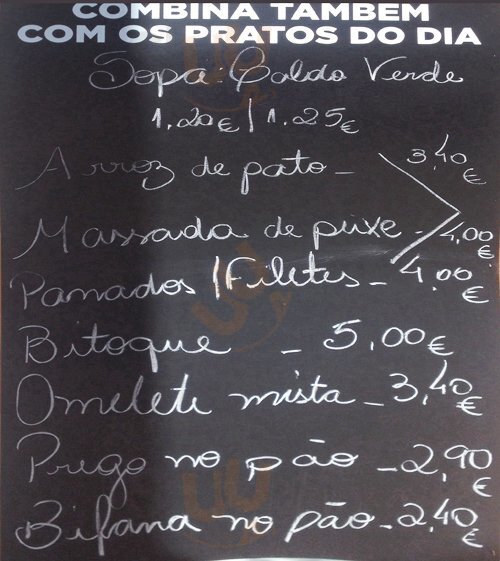 COMBINA TAMBEM
COM OS PRATOS DO DIA
Sopa: Caldo Verde
1.20€ | 1.25€
Arroz de pato - 3,40 €
Massada de peixe - 4,00 €
Panados | Filetes - 4,00 €
Bitoque - 5,00 €
Omelete mista - 3,40 €
Prego no pão - 2,90 €
Bifana no pão - 2,40 €